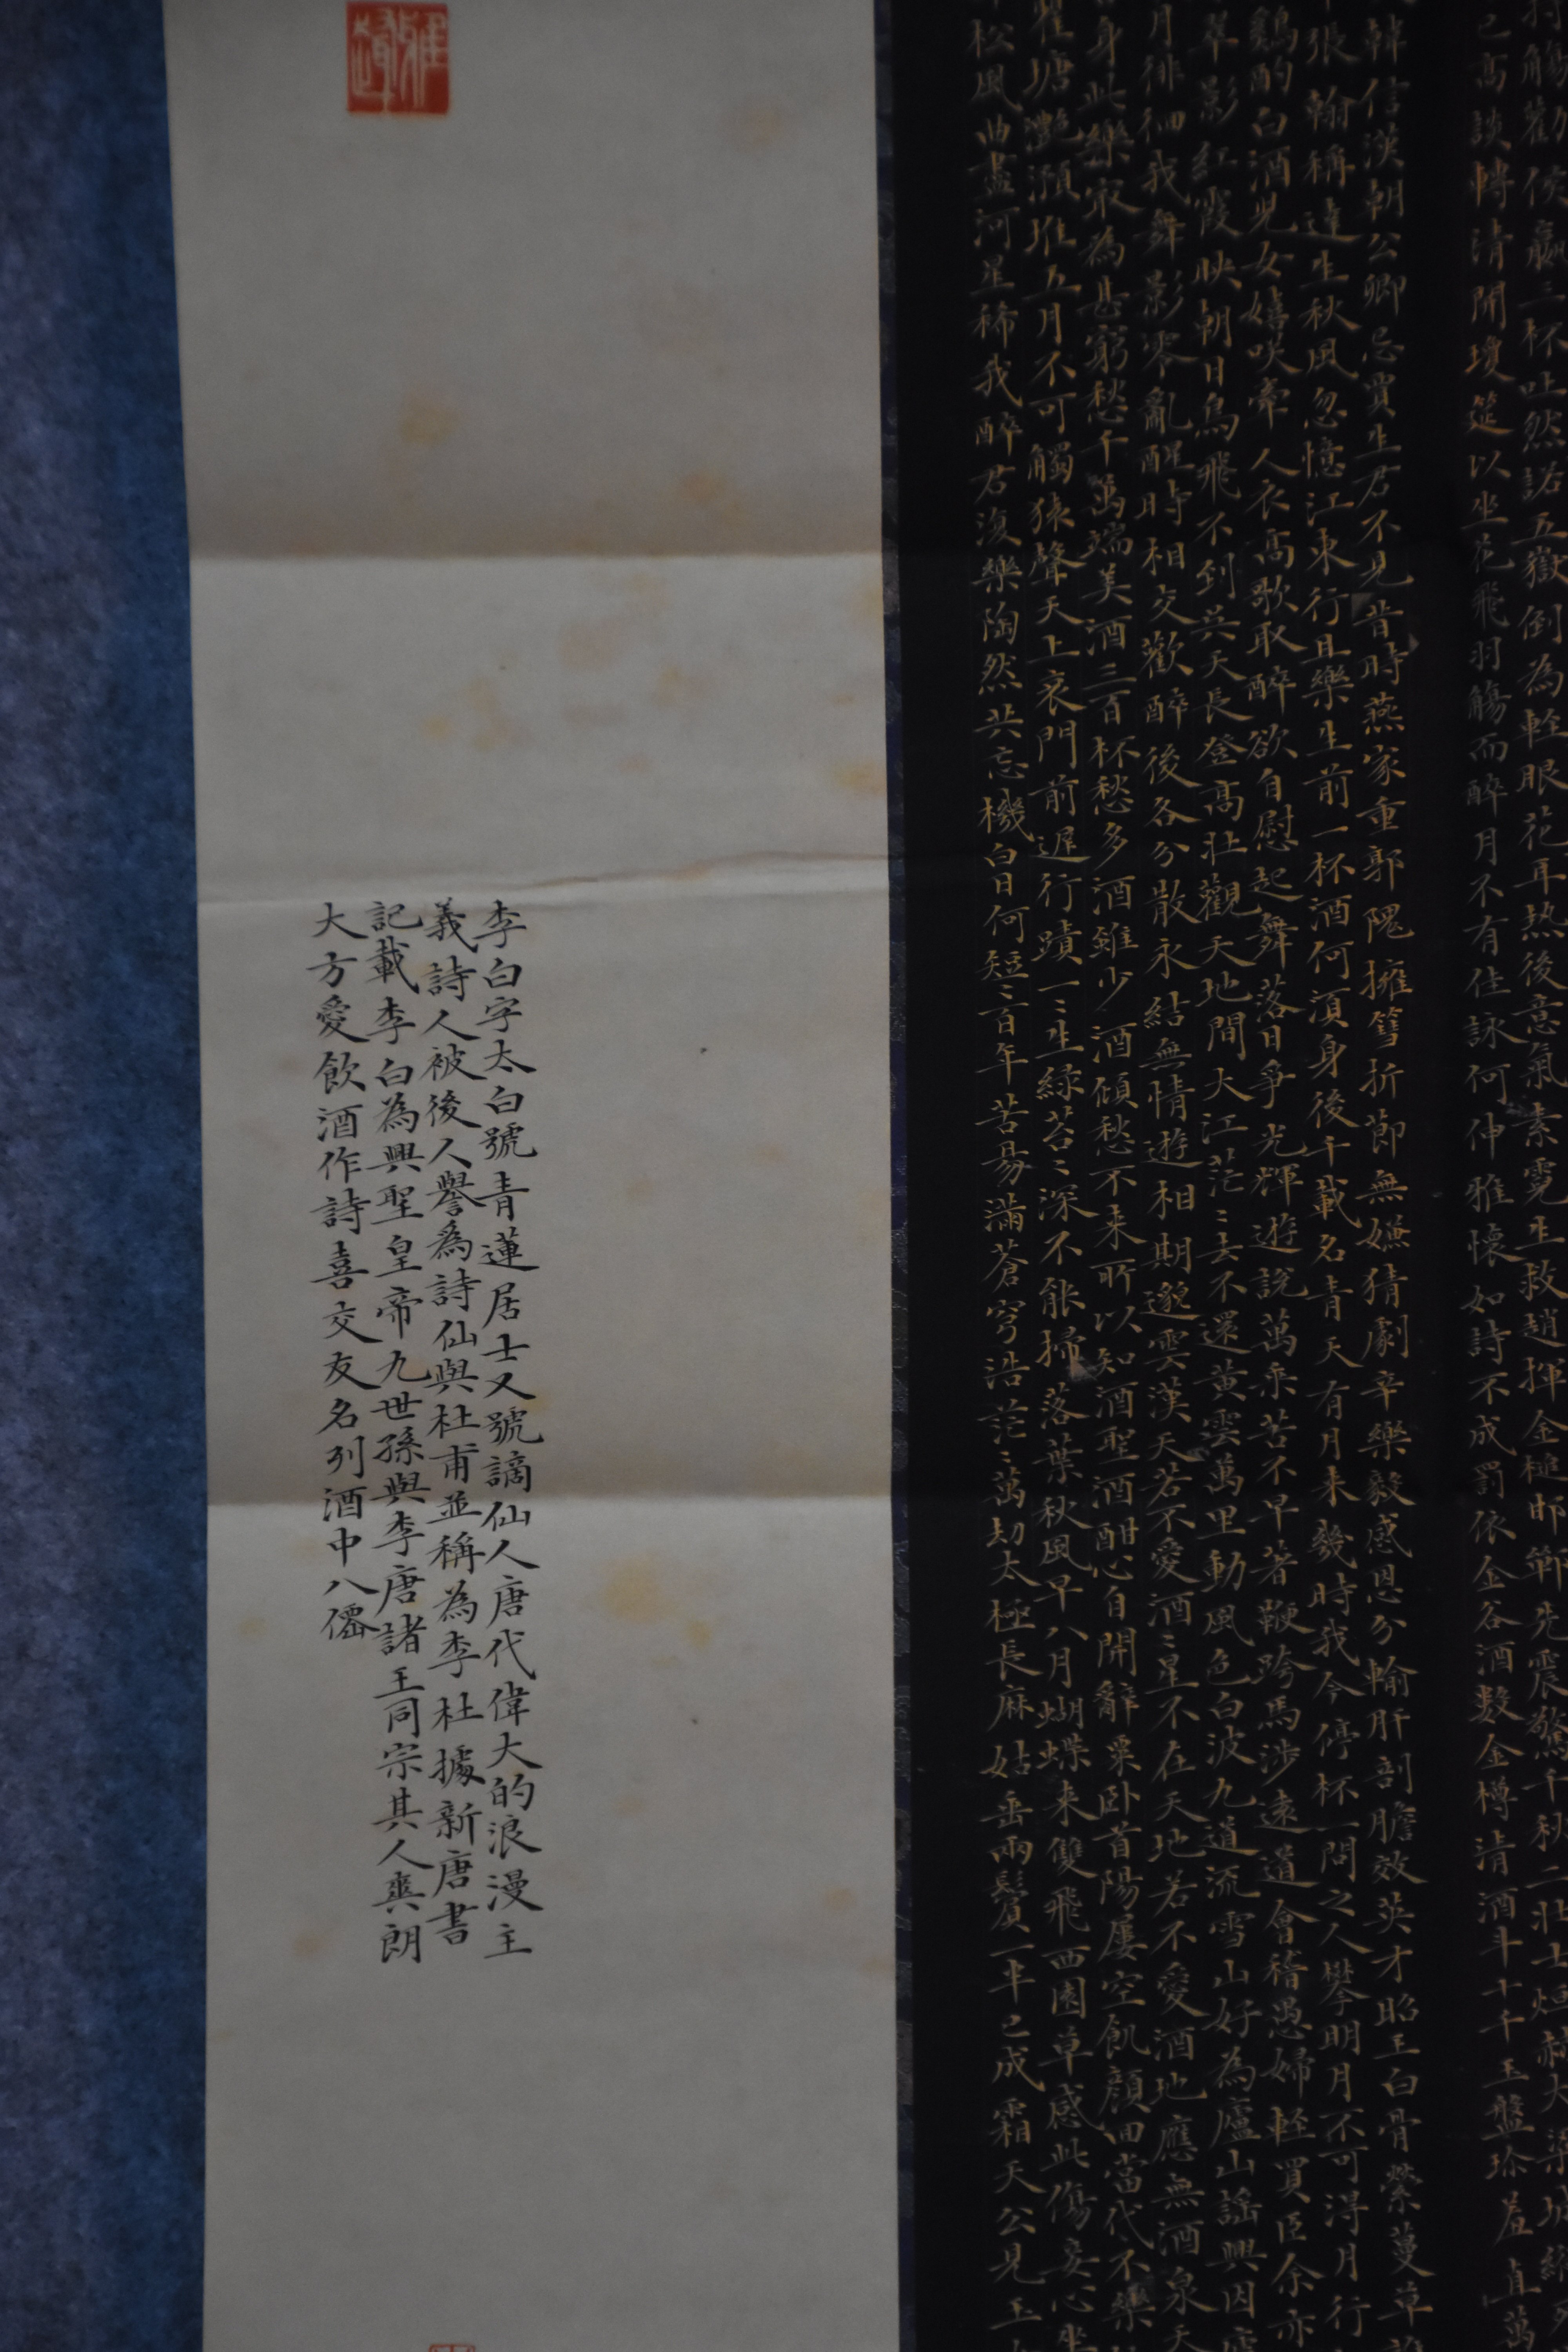 持觴勸侯嬴三杯吐然諾五嶽倒為輕眼花耳热後意氣素霓生救趙揮金槌邯鄲先震驚千秋二壯士烜赫大梁城
已高談轉清開瓊筵以坐花飛羽觴而醉月不有佳詠何伸雅懷如詩不成罰依金谷酒数金樽清酒斗十千玉盤珍羞直萬
韓信漢朝公卿忌賈生君不見昔時燕家重郭隗擁篲折節無嫌猜劇辛樂毅感恩分輸肝剖膽效英才昭王白骨縈蔓草
張翰稱達生秋風忽憶江東行且樂生前一杯酒何須身後千載名青天有月来幾時我今停杯一問之人攀明月不可得月行
鷄酌白酒兒女嬉咲牽人衣高歌取醉欲自慰起舞落日爭光輝遊說萬乘苦不早著鞭跨馬涉遠道會稽愚婦輕買臣余亦
翠影紅霞映朝日鳥飛不到吳天長登高壯觀天地間大江茫〻去不還黄雲萬里動風色白波九道流雪山好為廬山謠興因
月徘徊我舞影零亂醒時相交歡醉後各分散永結無情遊相期邈雲漢天若不愛酒〻星不在天地若不愛酒地應無酒泉天
身此樂最為甚窮愁千萬端美酒三百杯愁多酒雖少酒傾愁不来所以知酒聖酒酣心自開辭粟卧首陽屢空飢顏回當代不樂
瞿塘灔澦堆五月不可觸猿聲天上哀門前遲行蹟一〻生緑苔〻深不能掃落葉秋風早八月蝴蝶来雙飛西園草感此傷妾心坐
松風曲盡河星稀我醉君復樂陶然共忘機白日何短〻百年苦易滿蒼穹浩茫〻萬劫太極長麻姑垂兩鬢一半已成霜天公見玉
雅趣
李白字太白號青蓮居士又號謫仙人唐代偉大的浪漫主
義詩人被後人譽為詩仙與杜甫並稱為李杜據新唐書
記載李白為興聖皇帝九世孫與李唐諸王同宗其人爽朗
大方愛飲酒作詩喜交友名列酒中八僊